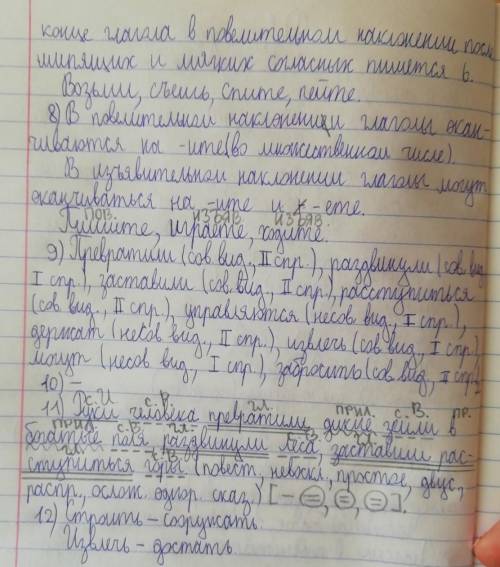 конце глагола в повелительном наклонении после
шипящих и мягких согласных пишется ь.
Возьми, съешь, спите, пейте.
8) В повелительном наклонении глаголы окан-
чиваются на -ите(во множественном числе).
В изъявительном наклонении глаголы могут
оканчиваться на -ите и -ете.
ПОВ. ИЗЪЯВ. ИЗЪЯВ.
Пишите, играете, ходите.
9) Превратили (сов. вид., II спр.), раздвинули (сов. вид
I спр.), заставили (сов. вид., II спр.), расступиться
(сов вид., II спр.), управляются (несов. вид., I спр.),
держат (несов вид., II спр.), извлечь (сов. вид., I спр.)
могут (несов вид., I спр.), забросить (сов. вид., II спр.)
10) –
с. И с. Р. гл. ПРИЛ. с. В. ПР.
11) Руки человека превратили дикие земли в
ПРИЛ. с. В. гл. с. В. гл.
богатые поля, раздвинули леса, заставили рас-
гл. с. В.
ступиться горы (повест., невоскл., простое, двус.,
распр., ослож. однор. сказ.) [– =, =, =].
12) Строить – сооружать.
Извлечь – достать